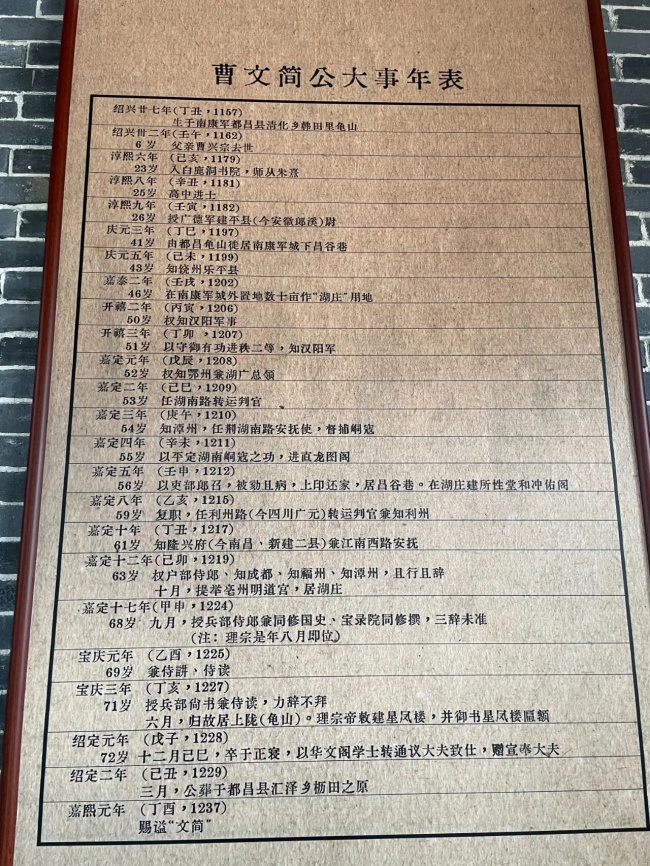 曹文简公大事年表
绍兴廿七年(丁丑，1157)
生于南康军都昌县清化乡韩田里龟山
绍兴卅二年(壬午，1162)
6岁 父亲曹兴宗去世
淳熙六年（己亥，1179)
23岁 入白鹿洞书院，师从朱熹
淳熙八年（辛丑，1181)
25岁 高中进士
淳熙九年（壬寅，1182)
26岁 授广德军建平县(今安徽郎溪)尉
庆元三年（丁巳，1197)
41岁 由都昌龟山徙居南康军城下昌谷巷
庆元五年（己未，1199)
43岁 知饶州乐平县
嘉泰二年（壬戌，1202)
46岁 在南康军城外置地数十亩作“湖庄”用地
开禧二年（丙寅，1206)
50岁 权知汉阳军事
开禧三年（丁卯，1207)
51岁 以守御有功进秩二等，知汉阳军
嘉定元年（戊辰，1208)
52岁 权知鄂州兼湖广总领
嘉定二年（己巳，1209)
53岁 任湖南路转运判官
嘉定三年（庚午，1210)
54岁 知潭州，任荆湖南路安抚使，督捕峒寇
嘉定四年（辛未，1211)
55岁 以平定湖南峒寇之功，进直龙图阁
嘉定五年（壬申，1212)
56岁 以吏部郎召，被劾且病，上印还家，居昌谷巷。在湖庄建所性堂和冲佑阁
嘉定八年（乙亥，1215)
59岁 复职，任利州路(今四川广元)转运判官兼知利州
嘉定十年（丁丑，1217)
61岁 知隆兴府(今南昌、新建二县)兼江南西路安抚
嘉定十二年(己卯，1219)
63岁 权户部侍郎、知成都、知福州、知潭州，且行且辞
十月，提举亳州明道宫，居湖庄
嘉定十七年(甲申，1224)
68岁 九月，授兵部侍郎兼同修国史、宝录院同修撰，三辞未准
(注：理宗是年八月即位)
宝庆元年（乙酉，1225)
69岁 兼侍讲、侍读
宝庆三年（丁亥，1227)
71岁 授兵部尚书兼侍读，力辞不拜
六月，归故居上陇(龟山)。理宗帝敕建星凤楼，并御书星凤楼匾额
绍定元年（戊子，1228)
72岁 十二月己巳，卒于正寝，以华文阁学士转通议大夫致仕，赠宣奉大夫
绍定二年（己丑，1229)
三月，公葬于都昌县汇泽乡枥田之原
嘉熙元年（丁酉，1237)
赐谥“文简”